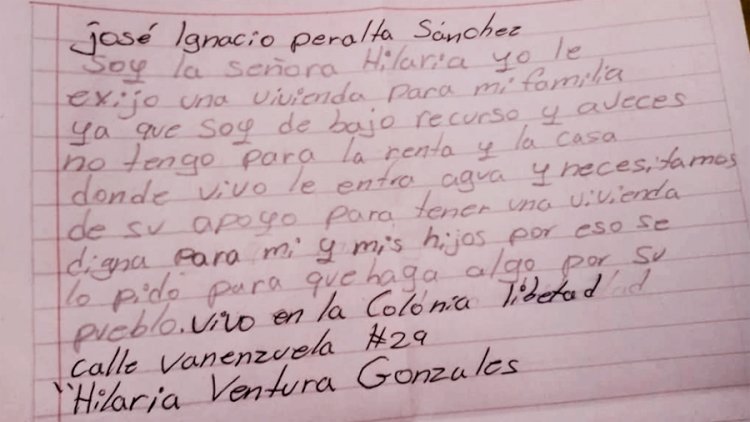 josé Ignacio peralta Sánchez
Soy la señora Hilaria yo le
exijo una vivienda para mi familia
ya que soy de bajo recurso y aveces
no tengo para la renta y la casa
donde vivo le entra agua y necesitamos
de su apoyo para tener una vivienda
digna para mi y mis hijos por eso se
lo pido para que haga algo por su
pueblo. vivo en la Colonia libetad
calle vanenzuela #29
"Hilaria Ventura Gonzales